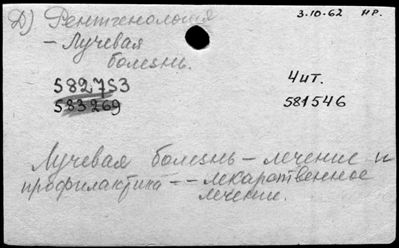 Д) Рентгенология 3.10-62 НР.
– Лучевая
болезнь.
582753 Чит.
583269 581546
Лучевая болезнь – лечение и
профилактика – – лекарственное
лечение.